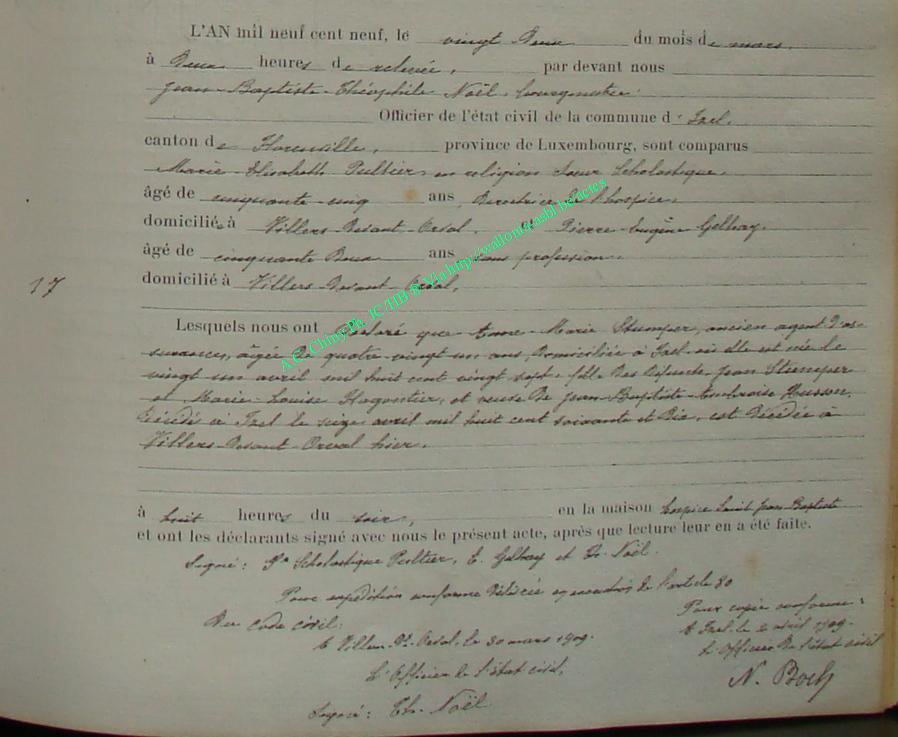 L'AN mil neuf cent neuf, le vingt Deux du mois de mars,
à Deux heures de relevée, par devant nous
Jean-Baptiste-Théophile Noël, bourgmestre
Officier de l'état civil de la commune d' Izel,
canton de Florenville, province de Luxembourg, sont comparus
Marie-Elisabeth Peltier, en religion Soeur Scholastique,
âgé de cinquante-cinq ans Directrice de l'hospice,
domiciliée à Villers-Devant-Orval, et Pierre-Eugène Gelhay,
âgé de cinquante Deux ans sans profession,
domicilié à Villers-Devant-Orval,
17
Lesquels nous ont Déclaré que Anne-Marie Stumper, ancien agent D'as-
surances, âgée De quatre-vingt un ans, Domiciliée à Izel où elle est née le
vingt un avril mil huit cent vingt sept, fille Des défunts Jean Stumper
et Marie-Louise et veuve De Jean-Baptiste-Ambroise Husson,
Décédé à Izel le seize avril mil huit cent soixante et Dix, est Décédée à
Villers-Devant-Orval hier,
à huit heures du soir, en la maison hospice Saint Jean-Baptiste
et ont les déclarants signé avec nous le présent acte, après que lecture leur en a été faite.
Signé: Sr Scholastique Peltier, E. Gelhay et Th. Noël.
Pour expédition conforme Délivrée en exécution de l'article 80
Du Code civil:
à Villers-Dt-Orval, le 30 mars 1909.
L'Officier de l'état civil,
Signé: Th. Noël
Pour copie conforme:
à Izel, le 2 avril 1909.
L'Officier De l'état civil
N. Bock
A.C. Chiny Ph. JC /HB @ Via http://wallonia.asbl.be/actes